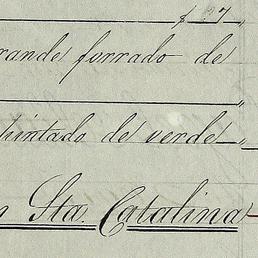 $ 37
rande forrado de
pintado de verde
n Sta. Catalina